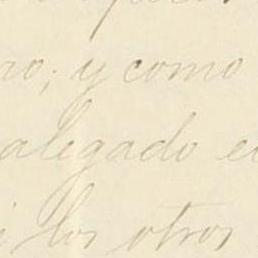 no; y como
alegado e
i los otros